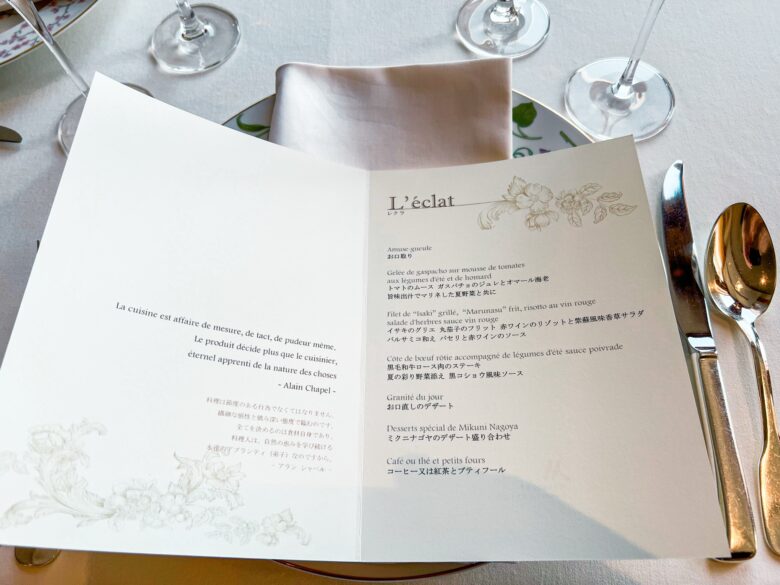 La cuisine est affaire de mesure, de tact, de pudeur même.
Le produit décide plus que le cuisinier,
éternel apprenti de la nature des choses
- Alain Chapel -
料理は節度のある行為でなくてはなりません。
繊細な感性と慎み深い態度で臨むのです。
全てを決めるのは食材自身であり、
料理人は、自然の恵みを学び続ける
永遠のアプランティ（弟子）なのですから。
- アラン シャペル -
L'éclat
レクラ
Amuse-gueule
お口取り
Gelée de gaspacho sur mousse de tomates
aux légumes d'été et de homard
トマトのムース ガスパチョのジュレとオマール海老
旨味出汁でマリネした夏野菜と共に
Filet de "Isaki" grillé, "Marunasu" frit, risotto au vin rouge
salade d'herbres sauce vin rouge
イサキのグリエ 丸茄子のフリット 赤ワインのリゾットと紫蘇風味香草サラダ
バルサミコ和え パセリと赤ワインのソース
Côte de bœuf rôtie accompagné de légumes d'été sauce poivrade
黒毛和牛ロース肉のステーキ
夏の彩り野菜添え 黒コショウ風味ソース
Granité du jour
お口直しのデザート
Desserts spécial de Mikuni Nagoya
ミクニナゴヤのデザート盛り合わせ
Café ou thé et petits fours
コーヒー又は紅茶とプティフール